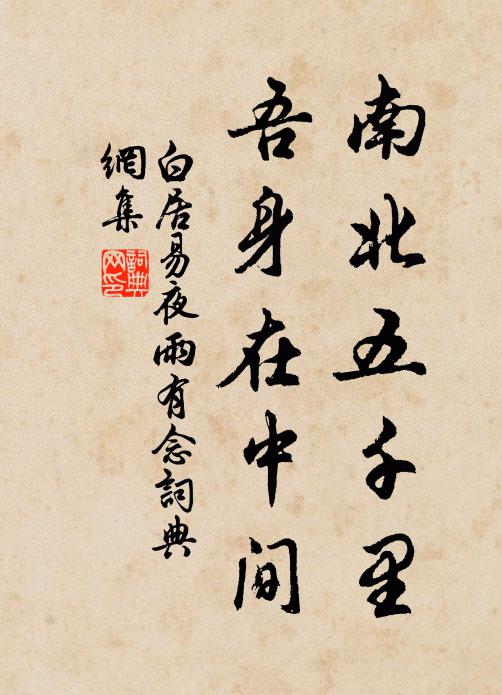 南北五千里
吾身在中間
白居易夜雨有念詞典
網集
詞典
网印